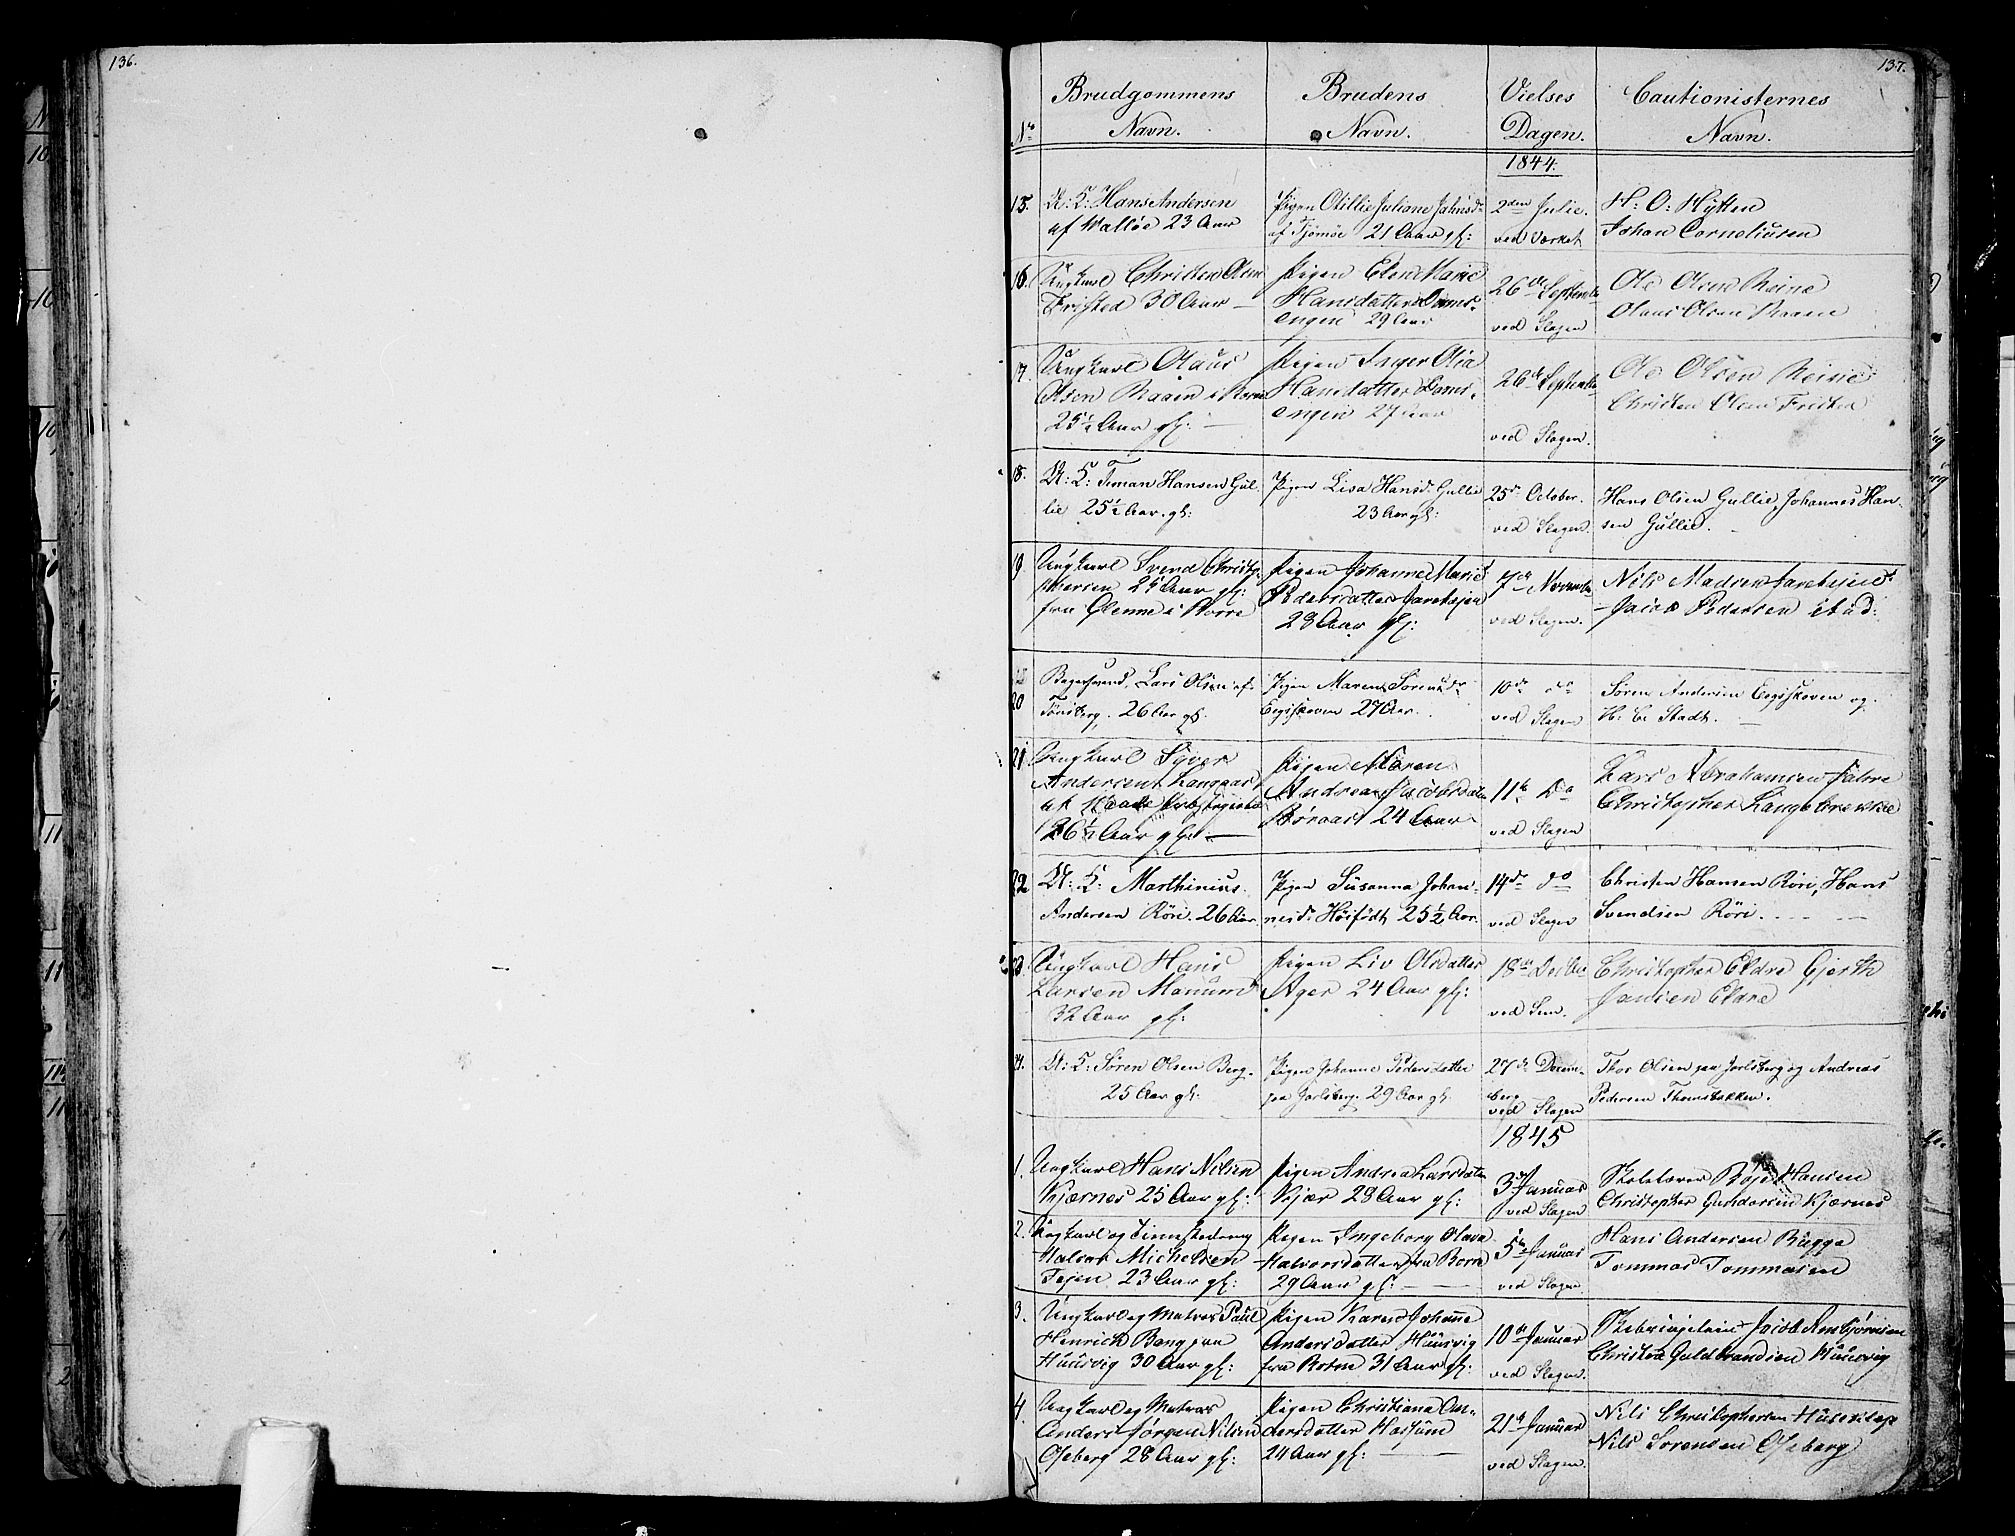 136.
137.
No Brudgommens Navn. Brudens Navn. Vielses Dagen. Cautionisternes Navn.
1844.
15. U: K: Hans Andersen
af Valløe 23 Aar
Pigen Otillie Juliane Jahnsd.
af Tjömöe 21 Aar gl:
2den Julie.
ved Værket
H: O: Hytten
Johan Corneliusen
16. Ungkarl Christen Olsen
Fristed 30 Aar
Pigen Elen Marie
Hansdatter Doms-
engen 29 Aar
26de Septembr
ved Slagen
Ole Olsen Reine
Olaus Olsen Raaen
17. Ungkarl Olaus
Olsen Raaen i Borre
25½ Aar gl:
Pigen Inger Olia
Hansdatter Doms-
engen 27 Aar
26de Septembr
ved Slagen.
Ole Olsen Reine
Christen Olsen Fristed
18. U: K: Timan Hansen Gul-
lie 25½ Aar. gl:
Pigen Lisa Hansd. Gullie
23 Aar gl:
25de October.
ved Slagen.
Hans Olsen Gullie, Johannes Han-
sen Gullie.
19. Ungkarl Svend Christop-
hersen 25 Aar gl:
fra Ølenne i Borre
Pigen Johanne Marie
Pedersdatter Jaretejen
28 Aar gl:
7de Novembr
ved Slagen.
Nils Madsen Jareteiet
Jacob Pedersen istad:
20 Bagersvend, Lars Olsen af
Tönsberg. 26 Aar gl.
Pigen Maren Sørensdr
Eegeskoven 27 Aar.
10de do
ved Slagen
Søren Andersen Eegeskoven og
H: C: Stadt.
21 Ungkarl Syver
Andersen Langaas
26½ Aar gl:
Pigen Maren
Andrea Jacobsdatter
Börnaas 24 Aar
11te Do
ved Slagen
Lars Abrahamsen Jahre
Christopher Langebrekke
22 U: K: Marthinius
Andersen Röri. 26 Aar.
Pigen Susanna Johan-
nesd. Höifödt 25½ Aar.
14de do
ved Slagen
Christen Hansen Röri, Hans
Svendsen Röri.
23. Ungkarl Hans
Larsen Manum
32 Aar gl:
Pigen Liv Olsdatter
Ager 24 Aar gl:
18de Decbr
ved Sem.
Christopher Eldre Gjerth
Jansen Eldre
24. U: K: Sören Olsen Berg.
25 Aar gl:
Pigen Johanne Pedersdatter
paa Jarlsberg. 29 Aar gl.
27de Decem-
berg
ved Slagen
Thor Olsen paa Jarlsberg og Andreas
Pedersen Thomsbakken.
1845
1. Ungkarl Hans Nilsen
Kjærnes 25 Aar gl:
Pigen Andrea Larsdatter
Kjær 28 Aar gl:
3de Januar
ved Slagen
Skolelærer Boje Hansen
Christopher Gundersen Kjærnes
2. Ungkarl og Timmermand
Halvor Michelsen
Tejen 23 Aar gl:
Pigen Ingeborg Olava
Halvorsdatter fra Borre
29 Aar gl:
5te Januar
ved Slagen
Hans Andersen Bugge
Tommas Tommasen
3. Ungkarl og Matros Paul
Henrich Bang paa
Huusvig 30 Aar gl:
Pigen Karen Johanne
Andersdatter Huusvig
fra Botne 31 Aar gl:
10de Januar
ved Slagen.
Jacob Arnbjørnsen
Christen Guldbrandsen Huusvig
4. Ungkarl og Matros
Anders Jörgen Nilsen
Oseberg 28 Aar gl:
Pigen Christiana An-
dersdatter Hassum
24 Aar gl:
21de Januar
ved Slagen.
Nils Christophersen
Nils Sorensen Oseberg